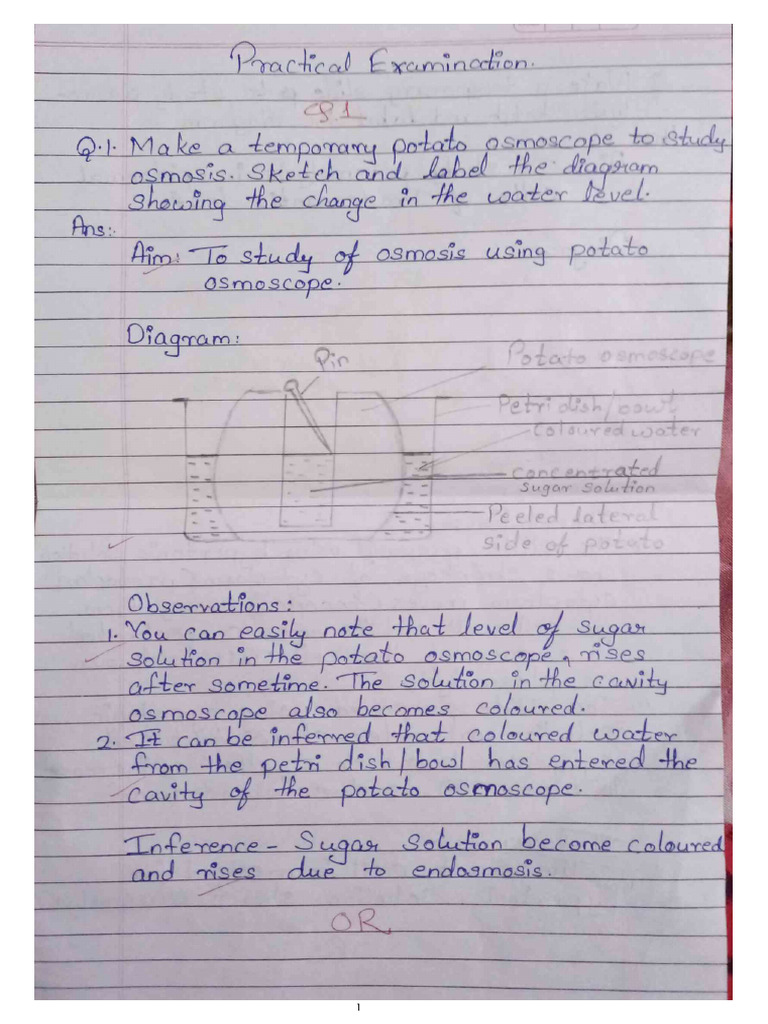 Practical Examination.
Q.1
Q.1. Make a temporary potato osmoscope to study
osmosis. Sketch and label the diagram
showing the change in the water level.
Ans:-
Aim: To study of osmosis using potato
osmoscope.
Diagram:
Pin
Potato osmoscope
Petri dish/bowl
Coloured water
concentrated
sugar solution
Peeled lateral
side of potato
Observations:
1. You can easily note that level of sugar
solution in the potato osmoscope, rises
after sometime. The solution in the cavity
osmoscope also becomes coloured.
2. It can be inferred that coloured water
from the petri dish/bowl has entered the
cavity of the potato osmoscope.
Inference - Sugar solution become coloured
and rises due to endosmosis.
OR
1